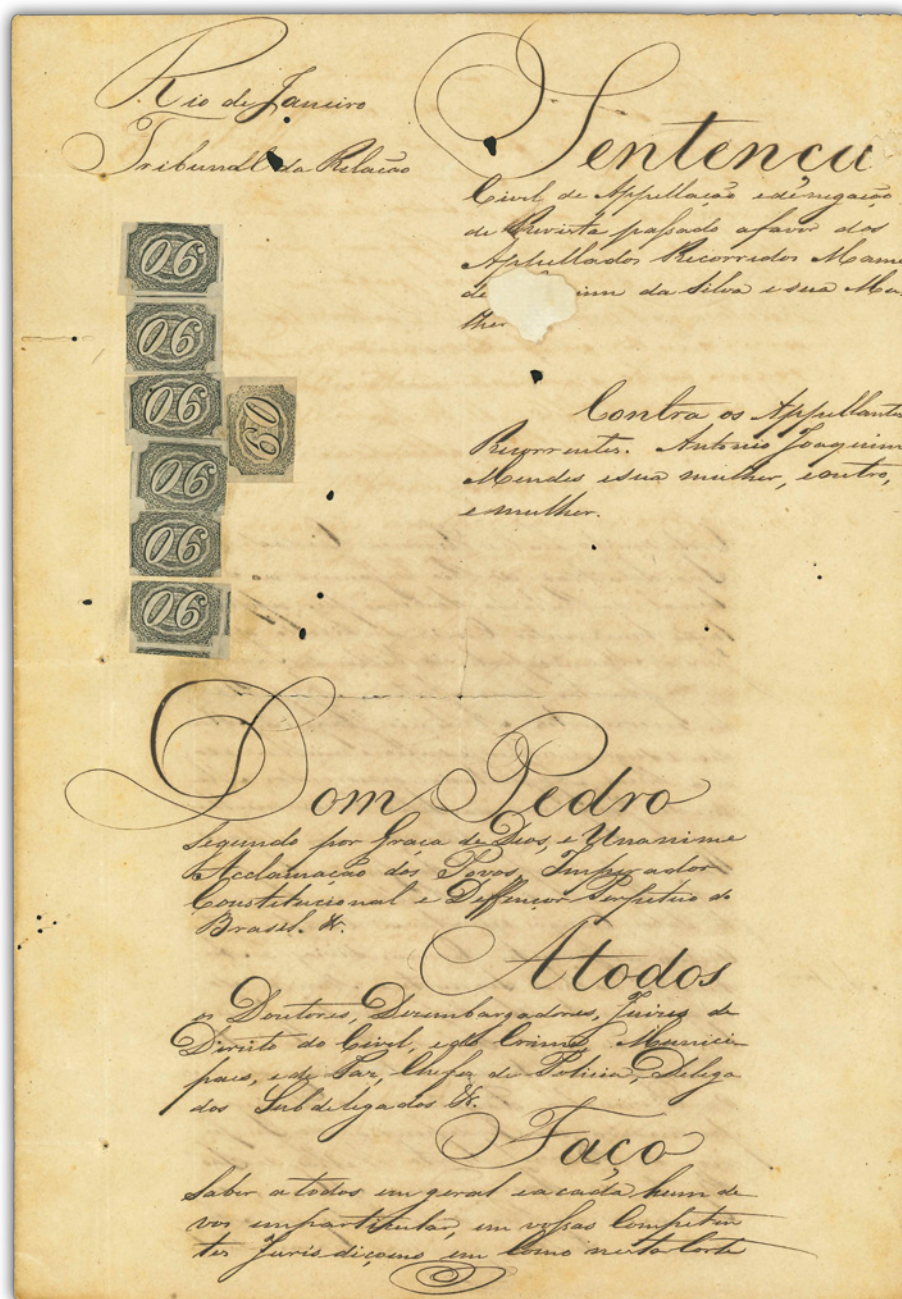 Rio de Janeiro
Tribunal da Relacão
Sentença
Civel de Appellacaõ e denegacaõ
de Revista passado a favor dos
Appellados Recorridos Mame
de da Silva e sua Mu
lher
Contra os Appellantes
Recorrentes. Antonio Joaquim
Mendes e sua mulher, e outro,
e mulher.
90
90
90
90
90
90
60
Dom Pedro
Segundo por Graça de Deos, e Unanime
Acclamação dos Povos, Imperador
Constitucional e Deffençor Perpetuo do
Brasil. &.
A todos
os Doutores, Dezembargadores, Juizes de
Direito do Civel, e do Crime, Munici-
paes, e de Paz, Chefes de Policia, Delega
dos Subdelegados &.
Faço
Saber a todos em geral e a cada hum de
vos em particular, em vossas Competen
tes Jurisdiçoens em Como nesta Corte